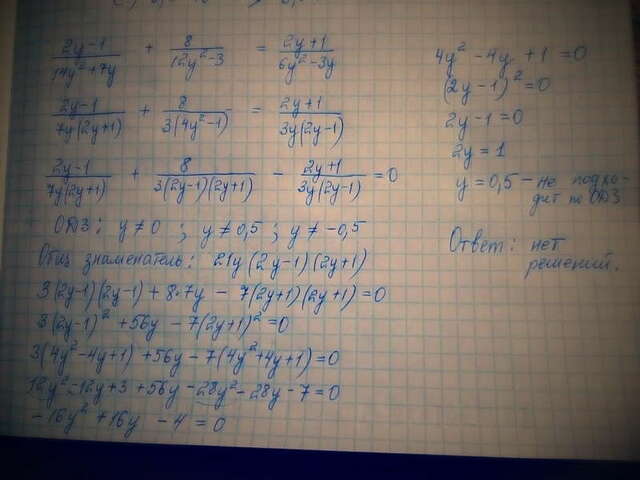 (2y-1)/(14y²+7y) + 8/(12y²-3) = (2y+1)/(6y²-3y)
(2y-1)/(7y(2y+1)) + 8/(3(4y²-1)) = (2y+1)/(3y(2y-1))
(2y-1)/(7y(2y+1)) + 8/(3(2y-1)(2y+1)) - (2y+1)/(3y(2y-1)) = 0
ОДЗ: y≠0 ; y≠0,5 ; y≠-0,5
Общ знаменатель: 21y(2y-1)(2y+1)
3(2y-1)(2y-1)+8·7y - 7(2y+1)(2y+1)=0
3(2y-1)² +56y - 7(2y+1)²=0
3(4y²-4y+1)+56y-7(4y²+4y+1)=0
12y²-12y+3+56y-28y²-28y-7=0
-16y²+16y -4=0
4y²-4y+1=0
(2y-1)²=0
2y-1=0
2y=1
y=0,5 - не подхо-
дит по ОДЗ
Ответ: нет
решений.